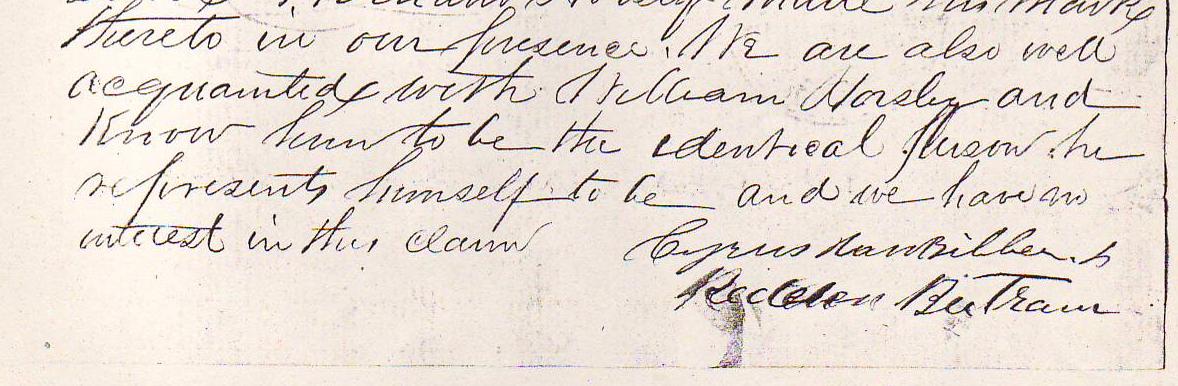 made his mark
thereto in our presence. We are also well
acquainted with William Horsley and
Know him to be the identical person he
represents himself to be and we have no
interest in this claim
Cyrus
Bertram